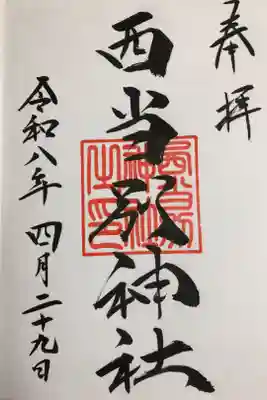 奉拝
西当別神社
令和八年四月二十九日